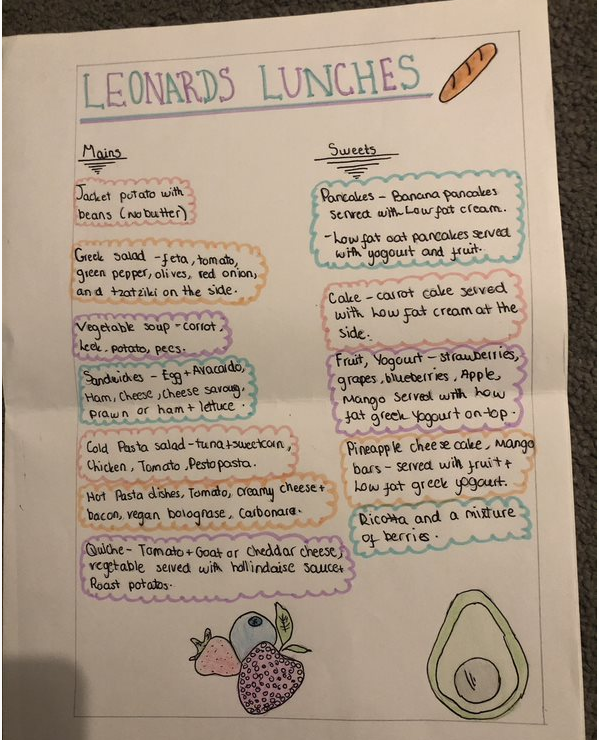 LEONARDS LUNCHES
Mains
Jacket potato with
beans (no butter)
Greek salad - feta, tomato,
green pepper, olives, red onion,
and tzatziki on the side.
Vegetable soup - carrot,
leek, potato, peas.
Sandwiches - Egg + Avacado,
Ham, cheese, cheese savoury,
prawn or ham + lettuce.
Cold Pasta salad - tuna + sweetcorn,
Chicken, Tomato, Pesto pasta.
Hot Pasta dishes, Tomato, creamy cheese +
bacon, vegan bolognase, Carbonara.
Quiche - Tomato + Goat or Cheddar cheese,
vegetable served with hollindaise sauce +
Roast potatos.
Sweets
Pancakes - Banana pancakes
served with Low fat cream.
- Low fat oat pancakes served
with yogourt and fruit.
Cake - carrot cake served
with Low fat cream at the
side.
Fruit, Yogourt - strawberries,
grapes, blueberries, Apple,
Mango served with Low
fat greek Yogourt on top.
Pineapple cheese cake, Mango
bars - served with fruit +
Low fat greek yogourt.
Ricotta and a mixture
of berries.